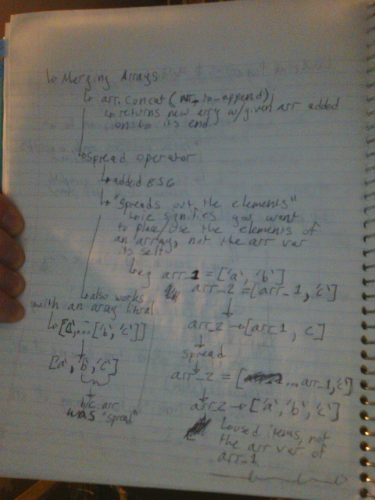 ↳ Merging Arrays
↳ arr.concat(arr-to-append);
↳ returns new array w/given arr added
onto its end
↳ spread operator
↳ added ES6
↳ "spreads out the elements"
↳ i.e. signifies you want
to place/use the elements of
an array, not the arr var
itself
↳ eg arr_1 = ['a', 'b']
arr_2 = [arr_1, 'c']
↓
arr_2 → [arr_1, c]
↓
spread
↓
arr_2 = [...arr_1, 'c']
↓
arr_2 → ['a', 'b', 'c']
↳ used items, not
the arr var of
arr_1
↳ also works
with an array literal
↳ ['a', ...['b', 'c']]
↓
['a', 'b', 'c']
↓
the arr
was "spread"